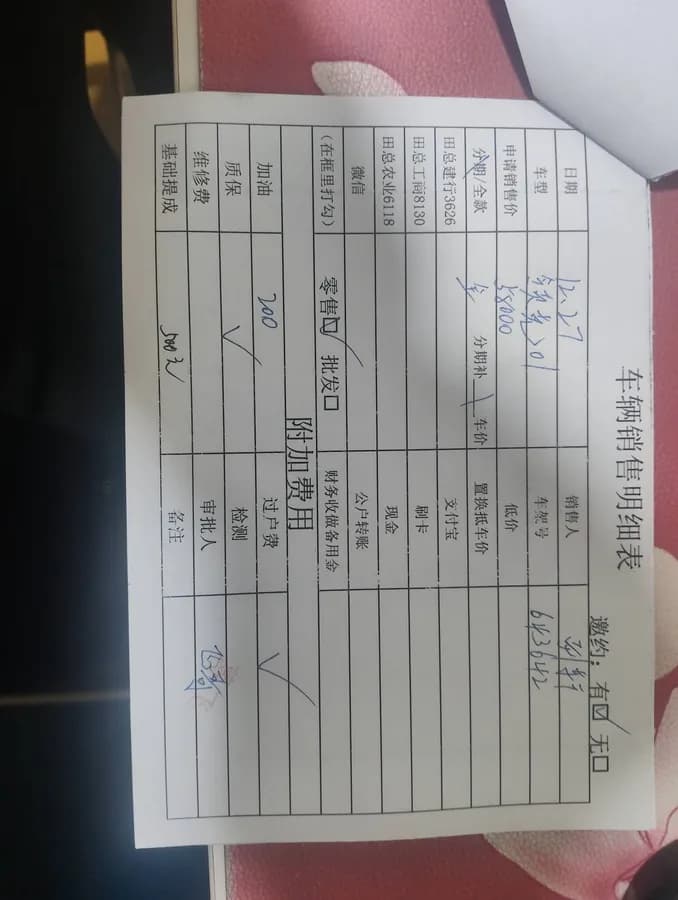 车辆销售明细表
邀约：有☑ 无□
日期 12.27 销售人
车型 车架号 643642
申请销售价 58000 低价
分期/全款 全 分期补 车价 置换抵车价
田总建行3626 支付宝
田总工商8130 刷卡
田总农业6118 现金
微信 公户转账
(在框里打勾) 零售☑ 批发□ 财务收做备用金
附加费用
加油 200 过户费 ✓
质保 ✓ 检测
维修费 审批人
基础提成 500元 备注